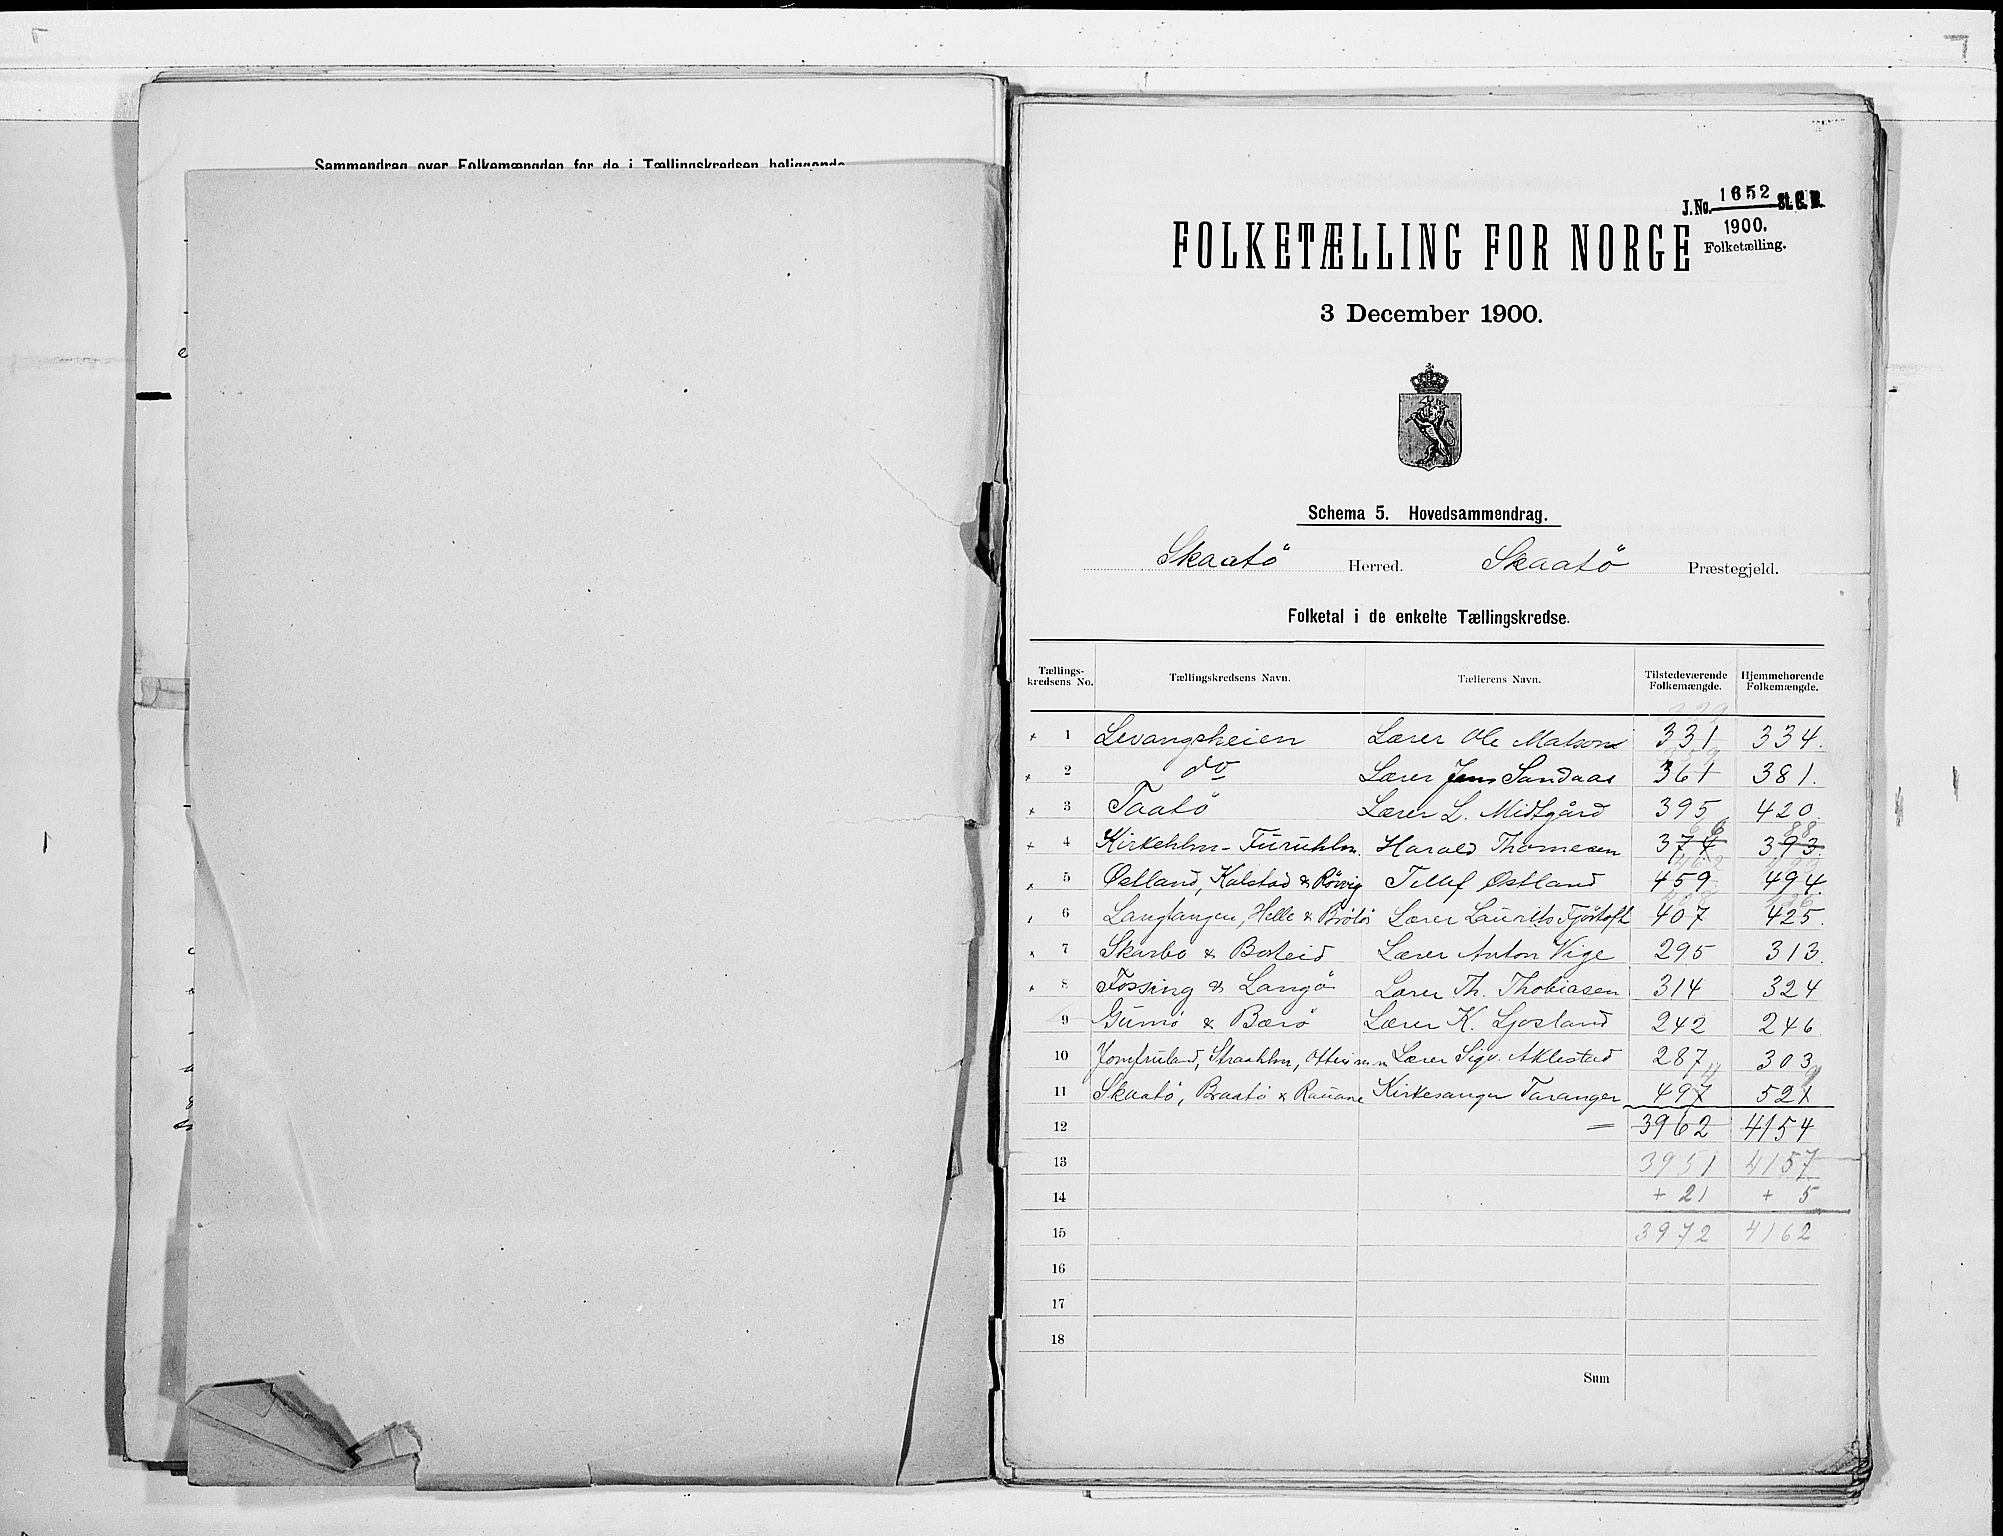 Sammendrag over Folkemængden for de i Tællingskredsen beliggende
J. No. 1652 St. C. B.
1900.
Folketælling.
FOLKETÆLLING FOR NORGE
3 December 1900.
Schema 5. Hovedsammendrag.
Skaatö Herred. Skaatö Præstegjeld.
Folketal i de enkelte Tællingskredse.
Tællings-kredsens No. Tællingskredsens Navn. Tællerens Navn. Tilstedeværende Folkemængde. Hjemmehørende Folkemængde.
329
1 Levangsheien Lærer Ole Matson 331 334.
2 do Lærer Jens Sandaas 361 381.
3 Taatö Lærer L. Midtgård 395 420
4 Kirkehlm-Furuhlm. Harald Thomesen 374 393
5 Östland, Kalstad & Rörvig Tellef Östland 459 494
6 Langtangen, Helle & Brötö Lærer Laurits Fjörtoft 407 425.
7 Skarbo & Borteid Lærer Anton Vige 295 313.
8 Fossing & Langö Lærer Th. Thobiasen 314 324
9 Gumö & Bærö Lærer K. Ljosland 242 246
10 Jomfruland, Straahlm, Lærer Sigv. Aklestad 287 303
11 Skaatö, Braatö & Rauane Kirkesanger Taranger 497 521
12 3962 4154
13 3951 4157
14 + 21 + 5
15 3972 4162
16
17
18
Sum